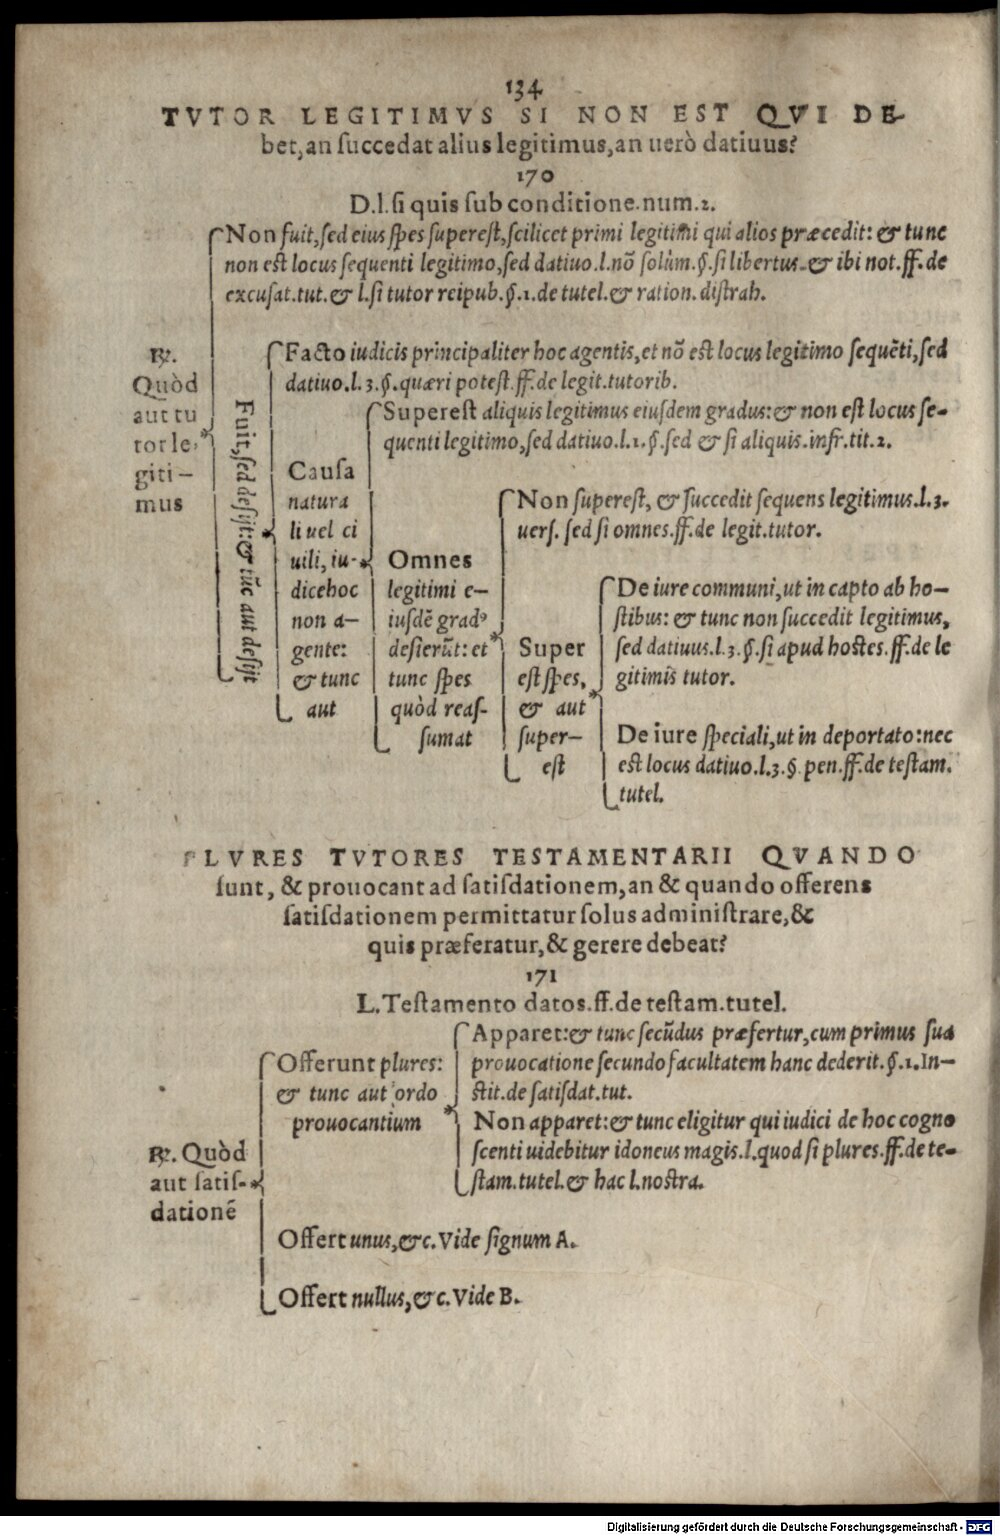 134
TVTOR LEGITIMVS SI NON EST QVI DE-
bet, an ſuccedat alius legitimus, an uerò datiuus?
170
D. l. ſi quis ſub conditione. num. 2.
℞.
Quòd
aut tu
tor le-
giti-
mus
Non fuit, ſed eius ſpes ſupereſt, ſcilicet primi legitimi qui alios præcedit: & tunc
non eſt locus ſequenti legitimo, ſed datiuo. l. nõ ſolùm. §. ſi libertus. & ibi not. ff. de
excuſat. tut. & l. ſi tutor reipub. §. 1. de tutel. & ration. diſtrah.
Fuit, ſed deſijt: & tũc aut deſijt
Facto iudicis principaliter hoc agentis, et nõ eſt locus legitimo ſequẽti, ſed
datiuo. l. 3. §. quæri poteſt. ff. de legit. tutorib.
Cauſa
natura
li uel ci
uili, iu-
dice hoc
non a-
gente:
& tunc
aut
Supereſt aliquis legitimus eiuſdem gradus: & non eſt locus ſe-
quenti legitimo, ſed datiuo. l. 1. §. ſed & ſi aliquis. infr. tit. 2.
Omnes
legitimi e-
iuſdẽ gradꝰ
deſierũt: et
tunc ſpes
quòd reaſ-
ſumat
Non ſupereſt, & ſuccedit ſequens legitimus. l. 3.
uerſ. ſed ſi omnes. ff. de legit. tutor.
Super
eſt ſpes,
& aut
ſuper-
eſt
De iure communi, ut in capto ab ho-
ſtibus: & tunc non ſuccedit legitimus,
ſed datiuus. l. 3. §. ſi apud hoſtes. ff. de le
gitimis tutor.
De iure ſpeciali, ut in deportato: nec
eſt locus datiuo. l. 3. §. pen. ff. de teſtam.
tutel.
PLVRES TVTORES TESTAMENTARII QVANDO
ſunt, & prouocant ad ſatiſdationem, an & quando offerens
ſatiſdationem permittatur ſolus adminiſtrare, &
quis præferatur, & gerere debeat?
171
L. Teſtamento datos. ff. de teſtam. tutel.
℞. Quòd
aut ſatiſ-
dationẽ
Offerunt plures:
& tunc aut ordo
prouocantium
Apparet: & tunc ſecũdus præfertur, cum primus ſua
prouocatione ſecundo facultatem hanc dederit. §. 1. In-
ſtit. de ſatiſdat. tut.
Non apparet: & tunc eligitur qui iudici de hoc cogno
ſcenti uidebitur idoneus magis. l. quod ſi plures. ff. de te-
ſtam. tutel. & hac l. noſtra.
Offert unus, &c. Vide ſignum A.
Offert nullus, &c. Vide B.
Digitalisierung gefördert durch die Deutsche Forschungsgemeinschaft - DFG